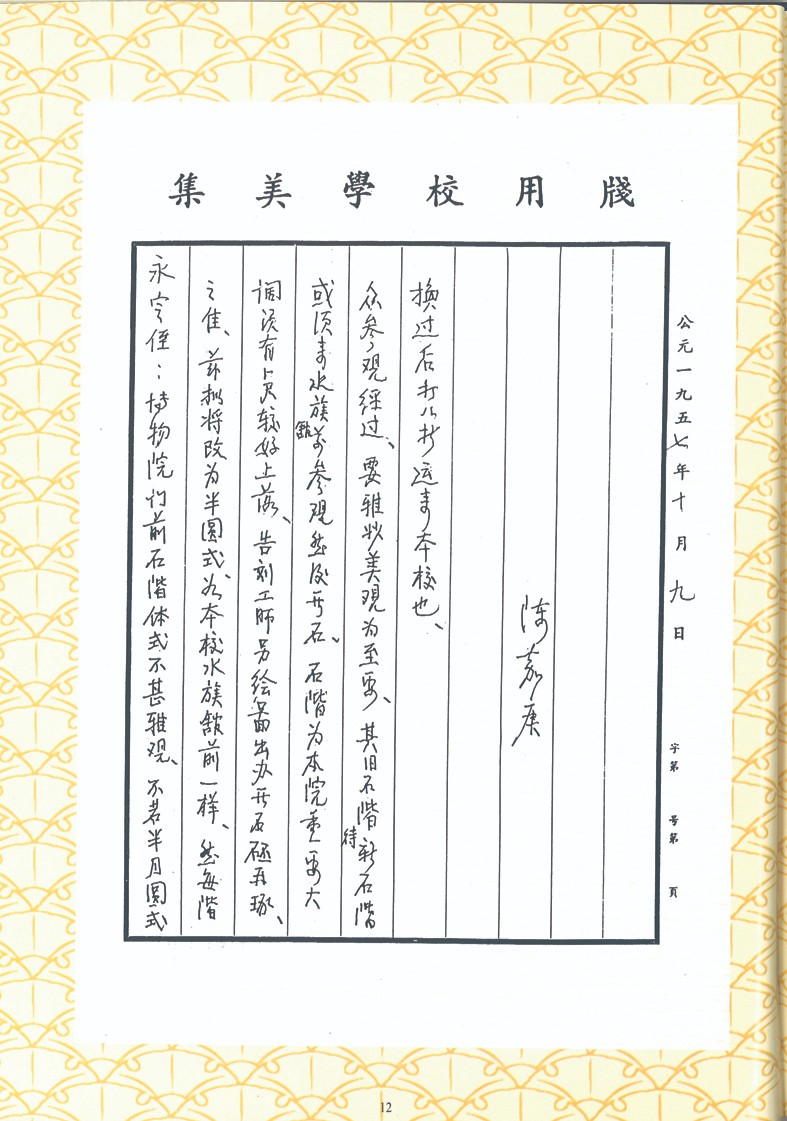 集美學校用牋
永定侄：博物院门前石階体式不甚雅观、不若半月圓式
之佳、茲拟将改为半圓式、为本校水族舘前一样、然每階
阔须有尺较好上落、告刻工师另绘啚出办开石再琢、
或须来水族舘前参观然后开石。石階为本院重要大
众参观经过、要雅妙美观为至要、其旧石階待新石階
換过后打八折运来本校也、
陈嘉庚
公元一九五七年十月九日
字第 号第 頁
12